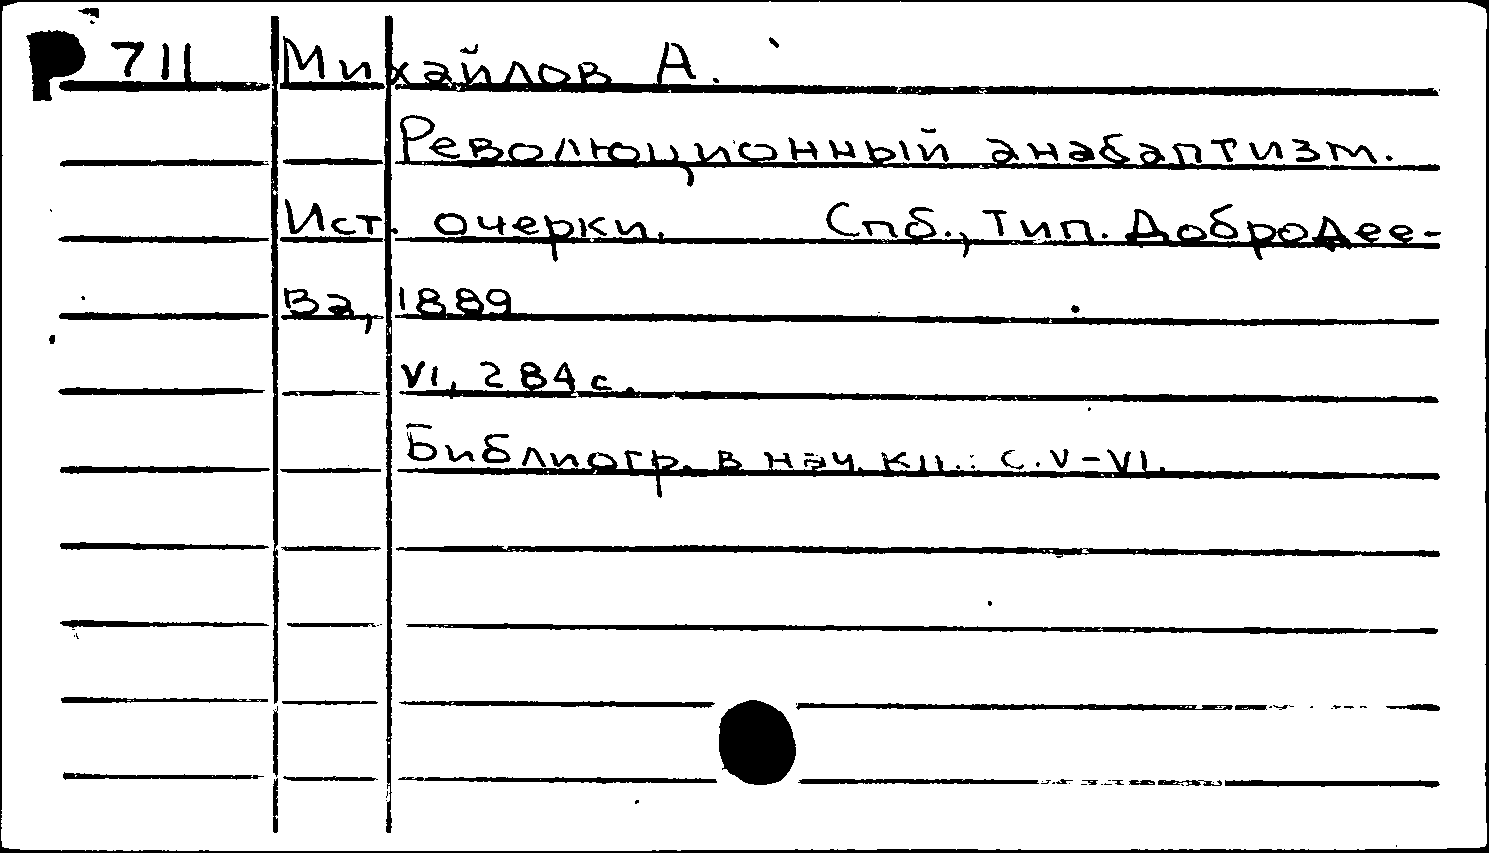 Р 711 Михайлов А.
Революционный анабаптизм.
Ист. очерки. Спб., Тип. Добродее-
ва, 1889
VI, 284 с.
Библиогр. в нач. кн.: с. V-VI.